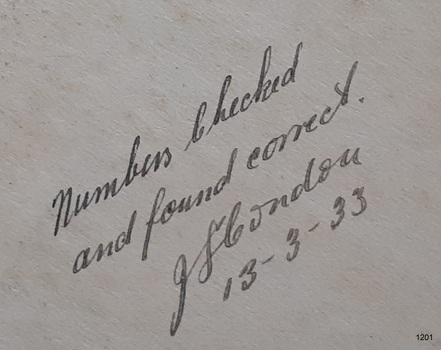 Numbers Checked
and found correct.
J S Condon
13-3-33
1201